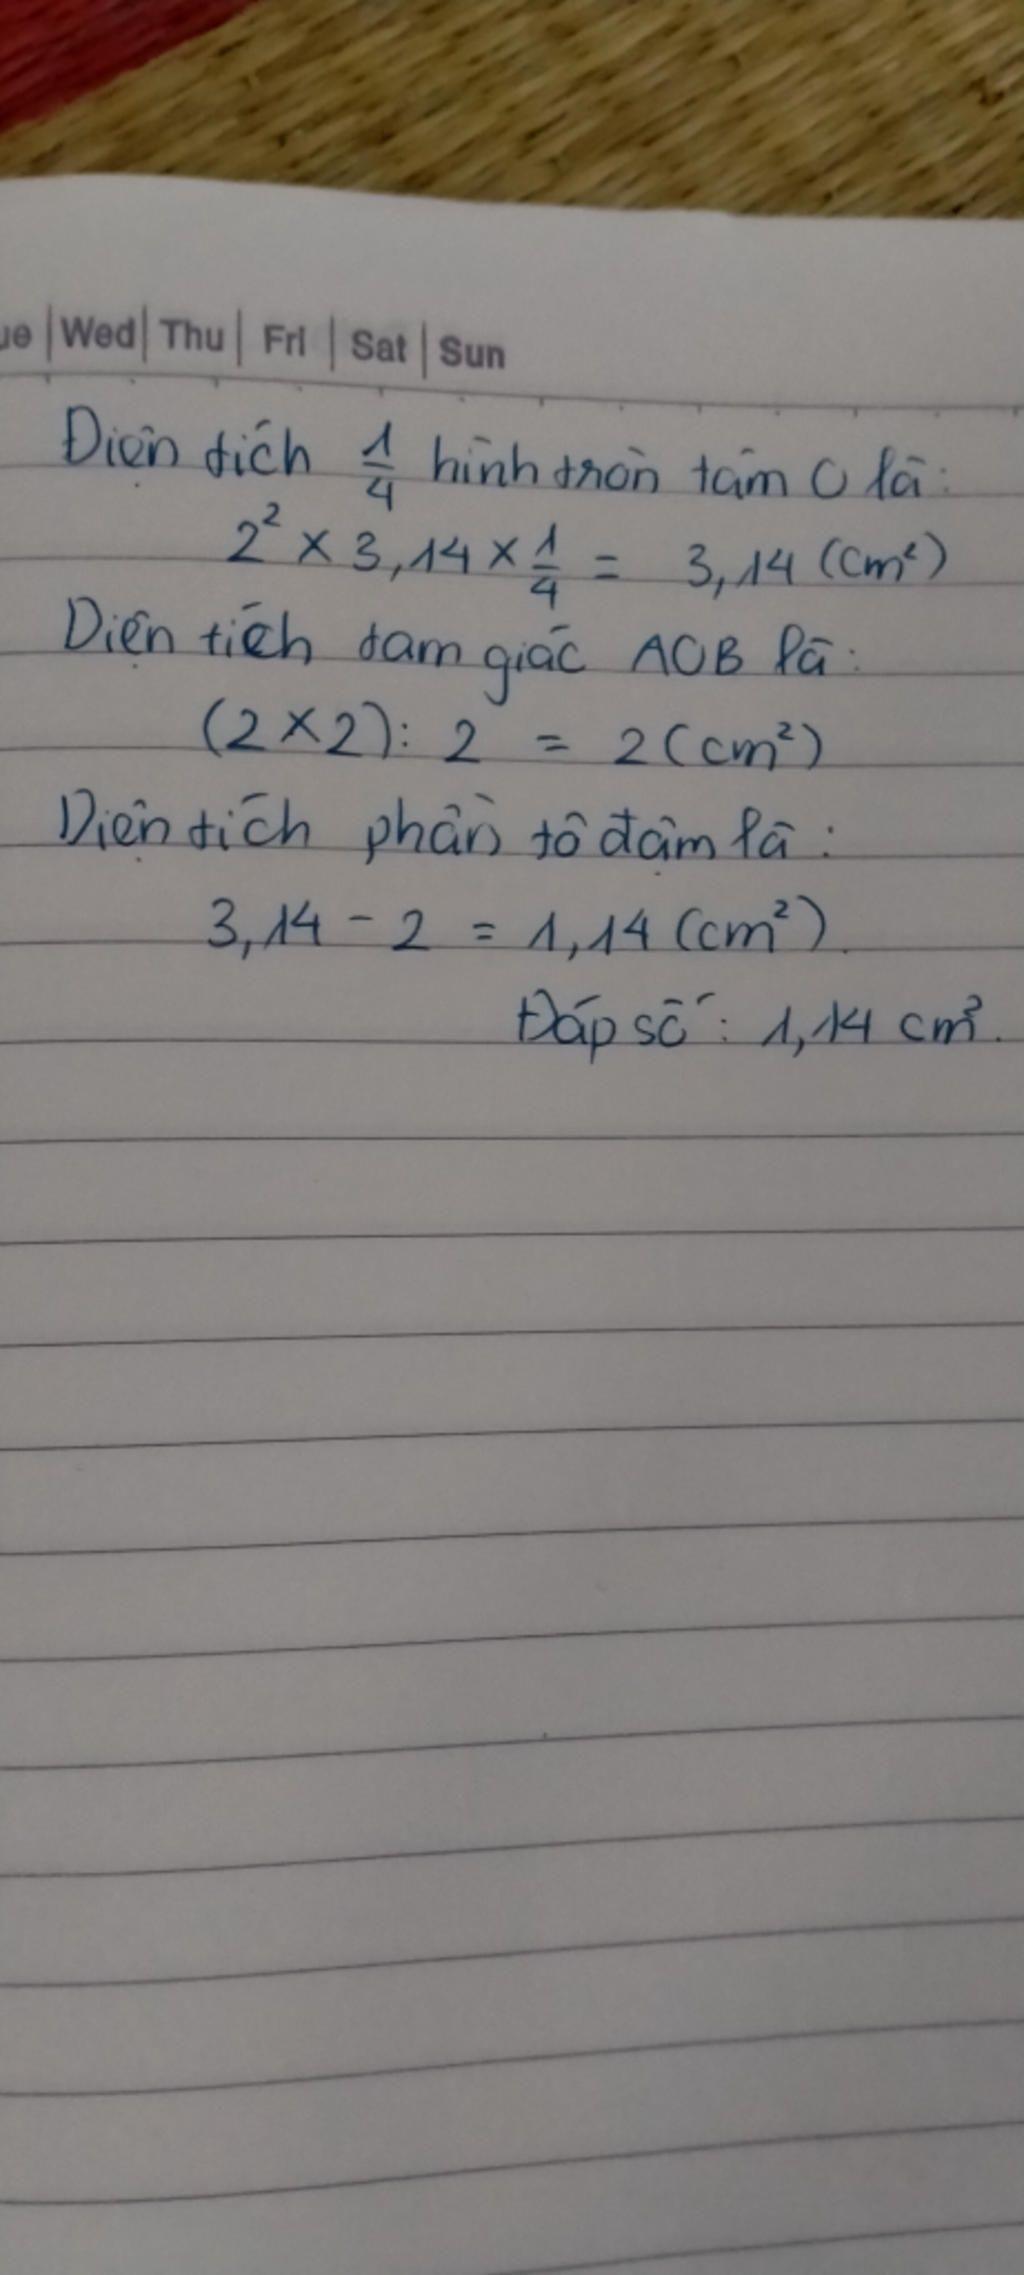 ue | Wed | Thu | Fri | Sat | Sun
Diện tích 1/4 hình tròn tâm O là:
2² × 3,14 × 1/4 = 3,14 (cm²)
Diện tích tam giác AOB là:
(2 × 2) : 2 = 2 (cm²)
Diện tích phần tô đậm là:
3,14 - 2 = 1,14 (cm²).
Đáp số: 1,14 cm².